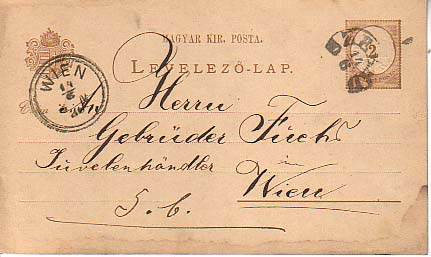 MAGYAR KIR. POSTA.
LEVELEZŐ-LAP.
WIEN
2
Herrn
Gebrüder Fuchs
Juvelenhändler
in
Wien